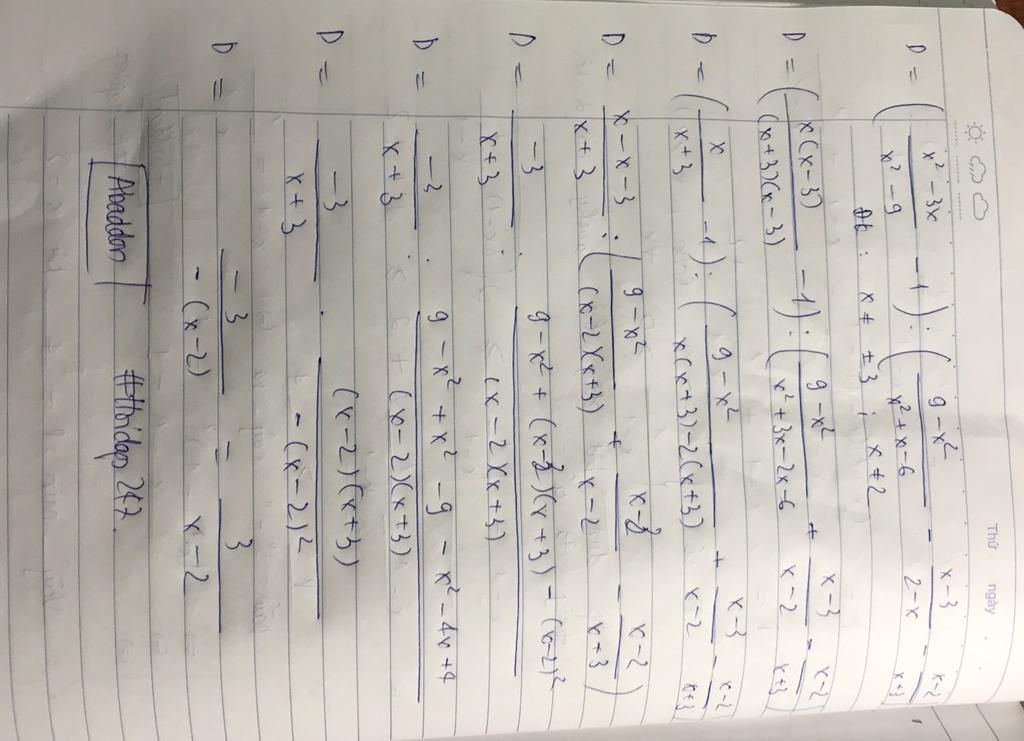 Thứ ngày
D = ( (x² - 3x)/(x² - 9) - 1 ) : ( (9 - x²)/(x² + x - 6) - (x - 3)/(2 - x) - (x - 2)/(x + 3)
Đk : x ≠ ± 3 ; x ≠ 2
D = ( x(x - 3)/((x + 3)(x - 3)) - 1 ) : ( (9 - x²)/(x² + 3x - 2x - 6) + (x - 3)/(x - 2) - (x - 2)/(x + 3)
D = ( x/(x + 3) - 1 ) : ( (9 - x²)/(x(x + 3) - 2(x + 3)) + (x - 3)/(x - 2) - (x - 2)/(x + 3)
D = (x - x - 3)/(x + 3) : ( (9 - x²)/((x - 2)(x + 3)) + (x - 3)/(x - 2) - (x - 2)/(x + 3) )
D = -3/(x + 3) : (9 - x² + (x - 3)(x + 3) - (x - 2)²)/((x - 2)(x + 3))
D = -3/(x + 3) : (9 - x² + x² - 9 - x² - 4x + 4)/((x - 2)(x + 3))
D = -3/(x + 3) . ((x - 2)(x + 3))/(-(x - 2)²)
D = -3/(-(x - 2)) = 3/(x - 2)
Abaddon #Hoidap247.